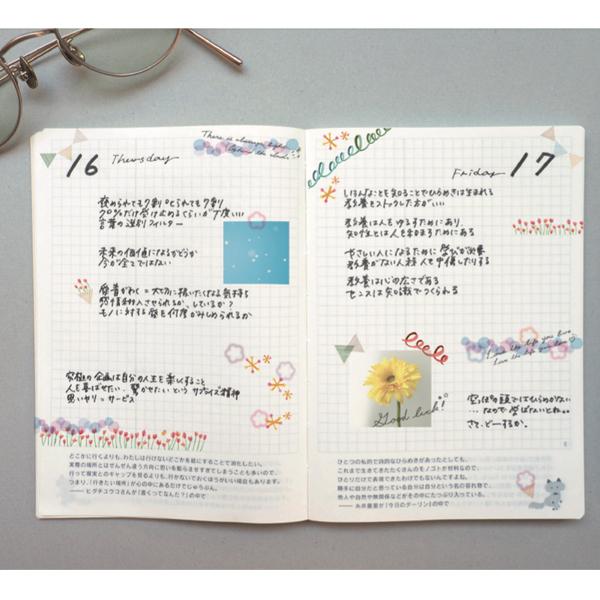 16 Thursday
There is always light
behind the clouds.
褒められても7割 叱られても7割
言葉の選別フィルター
未来の価値になるかどうか
今が全てではない
愛着がわく=大切に扱いたくなる気持ち
感情移入させられるか、しているか?
モノに対する愛を何度かみしめられるか
究極の企画は自分の人生を楽しくすること
人を喜ばせたい、驚かせたいという サプライズ精神
思いヤリ=サービス
どこかに行くよりも、わたしは行けないどこかを絵にすることで消化したい。
実際の場所とはぜんぜん違う方向に思いを膨らませすぎてしまうことも多いので、
行って現実とのギャップを見るよりも、行かないでおくほうがいい場合もあります。
つまり、「行きたい場所」が心の中にあるだけでじゅうぶん。
──ヒグチユウコさんが『言くってなんだ?』の中で
Friday 17
いろんなことを知ることでひらめきは生まれる
教養をストックした方がいい
教養は人をゆるすためにあり
知性とは人を和ますためにある
やさしい人になるために 学びが必要
教養がない人程 人を中傷したりする
教養は心の広さである
センスは知る数でつくられる
Love the life you live.
Live the life you love.
Good luck!
空っぽの頭ではひらめかない…
…なので 学ばないとね。
さて、どーするか。
ひとつの私的で詩的なひらめきがあったとしても、
これまで生きてきたたくさんのモノゴトが材料なので、
ひとりだけで表現できたわけでもないんですよね。
勝手に自分だと思っている自分は自分という名の容れ物で、
他人や自然や無関係などがその中にたっぷり入っている。
──糸井重里が『今日のダーリン』の中で